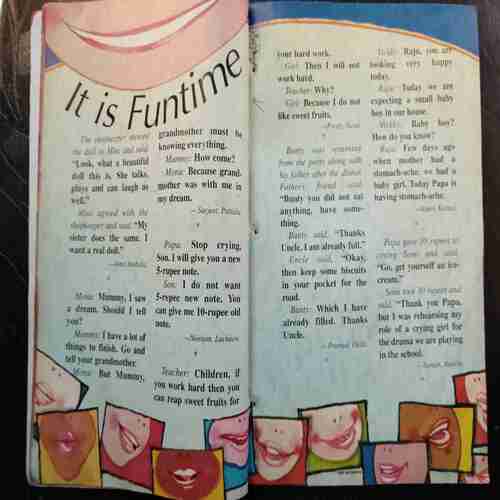 It is Funtime
The shopkeeper showed
the doll to Mini and said
"Look, what a beautiful
doll this is. She talks,
plays and can laugh as
well."
Mini agreed with the
shopkeeper and said, "My
sister does the same. I
want a real doll."
Mona: Mummy, I saw
a dream. Should I tell
you?
Mummy: I have a lot of
things to finish. Go and
tell your grandmother.
Mona: But Mummy,
grandmother must be
knowing everything.
Mummy: How come?
Mona: Because grand-
mother was with me in
my dream.
Papa: Stop crying,
Son. I will give you a new
5-rupee note.
Son: I do not want
5-rupee new note. You
can give me 10-rupee old
note.
—Neelam, Lucknow
Teacher: Children, if
you work hard then you
can reap sweet fruits for
your hard work.
Girl: Then I will not
work hard.
Teacher: Why?
Girl: Because I do not
like sweet fruits.
Bunty was returning
from the party along with
his father after the dinner.
Father's friend said,
"Bunty you did not eat
anything, have some-
thing.
Bunty said, "Thanks
Uncle, I am already full."
Uncle said, "Okay,
then keep some biscuits
in your pocket for the
road.
Bunty: Which I have
already filled. Thanks
Uncle.
Raju, you are
looking very happy
today.
Raju: Today we are
expecting a small baby
boy in our house.
Baby boy?
How do you know?
Raju: Few days ago
when mother had a
stomach-ache, we had a
baby girl. Today Papa is
having stomach-ache.
Papa gave 10 rupeet to
crying Sonu and said,
"Go, get yourself an ice-
cream."
Sonu took 10 rupeet and
said, "Thank you Papa,
but I was rehearsing my
role of a crying girl for
the drama we are playing
in the school.